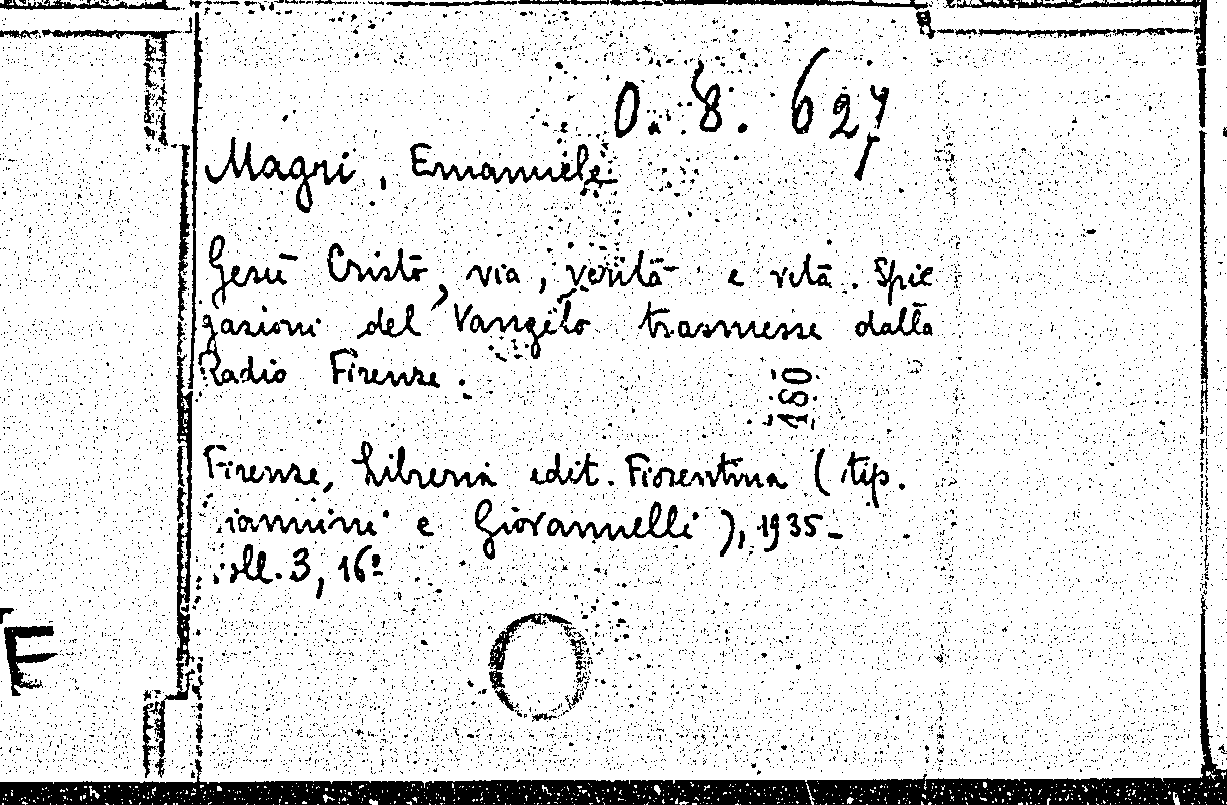 O. 8. 627
Magri, Emanuele
Gesù Cristo, via, verità e vita. Spie
gazioni del Vangelo trasmesse dalla
Radio Firenze.
180
Firenze, Libreria edit. Fiorentina (tip.
iannini e Giovannelli), 1935-
oll. 3, 16º
E